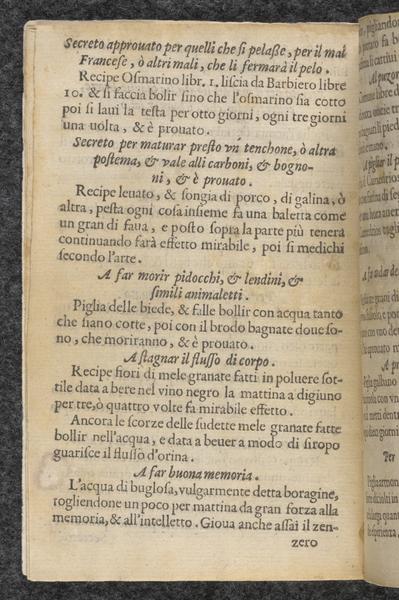 Secreto approuato per quelli che si pelaße, per il mal
Francese, ò altri mali, che li fermarà il pelo.
Recipe Osmarino libr. 1. liscia da Barbiero libre
10. & si faccia bolir sino che l'osmarino sia cotto
poi si laui la testa per otto giorni, ogni tre giorni
una uolta, & è prouato.
Secreto per maturar presto vn tenchone, ò altra
postema, & vale alli carboni, & bogno-
ni, & è prouato.
Recipe leuato, & songia di porco, di galina, ò
altra, pesta ogni cosa insieme fa una baletta come
un gran di faua, e posto sopra la parte più tenera
continuando farà effetto mirabile, poi si medichi
secondo l'arte.
A far morir pidocchi, & lendini, &
simili animaletti.
Piglia delle biede, & falle bollir con acqua tanto
che siano cotte, poi con il brodo bagnate doue so-
no, che moriranno, & è prouato.
A stagnar il flusso di corpo.
Recipe fiori di mele granate fatti in poluere sot-
tile data a bere nel vino negro la mattina a digiuno
per tre, ò quattro volte fa mirabile effetto.
Ancora le scorze delle sudette mele granate fatte
bollir nell'acqua, e data a beuer a modo di siropo
guarisce il flusso d'orina.
A far buona memoria.
L'acqua di buglosa, vulgarmente detta boragine,
togliendone un poco per mattina da gran forza alla
memoria, & all'intelletto. Gioua anche assai il zen-
zero